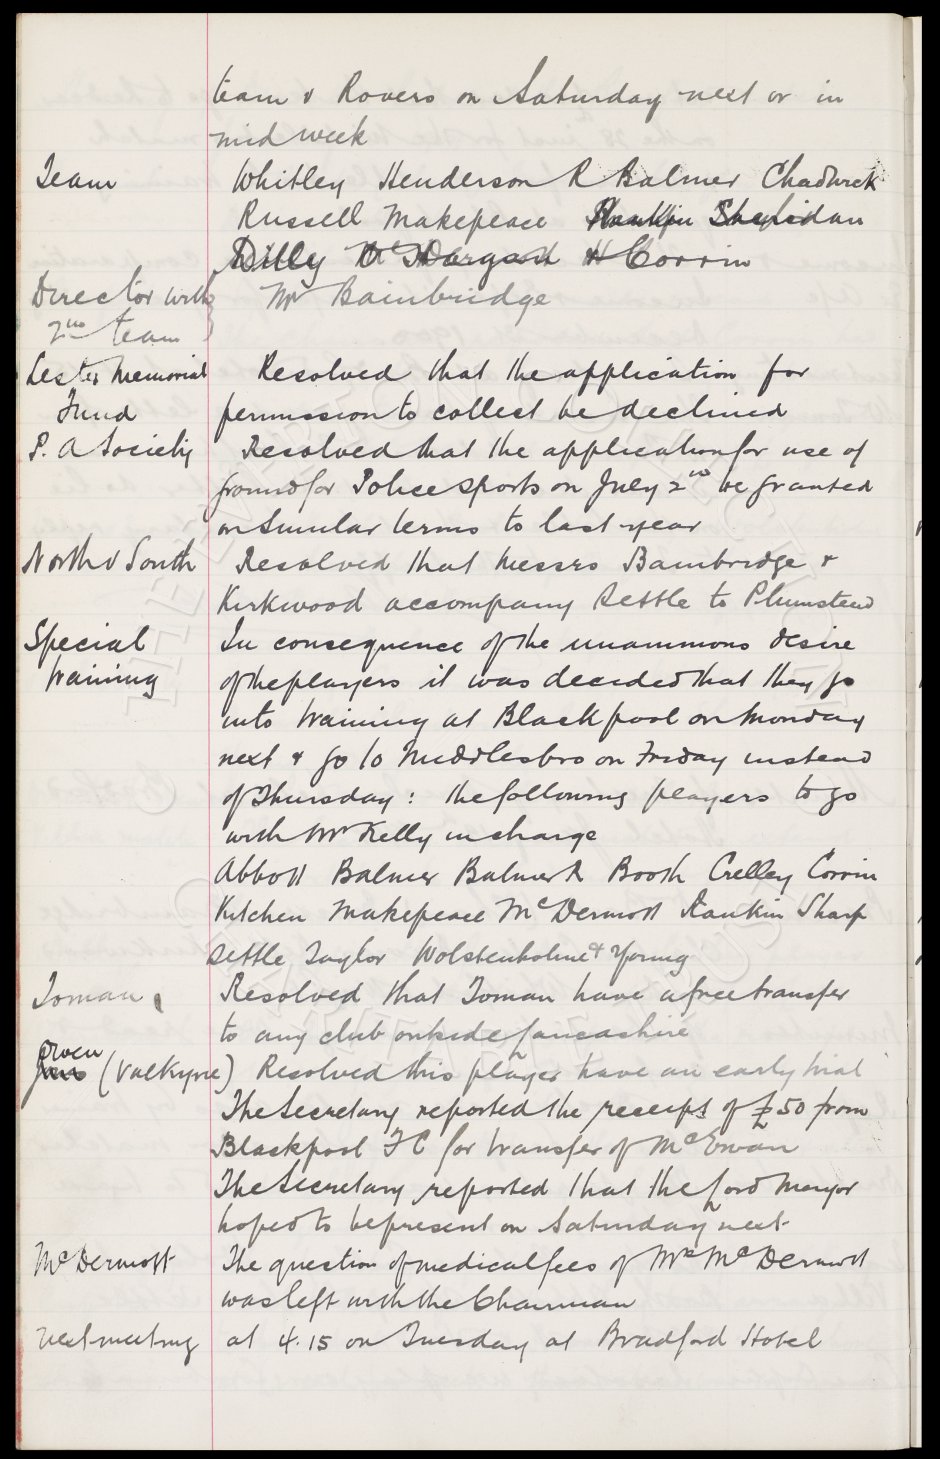 team & Rovers on Saturday next or in
mid week
Team Whitley Henderson R Balmer Chadwick
Russell Makepeace Rankin Sheridan
Dilly McDargavel H Corrin
Director with Mr Bainbridge
2nd team
Lester Memorial Resolved that the application for
Fund permission to collect be declined
P. A Society Resolved that the application for use of
ground for Police sports on July 2nd be granted
on similar terms to last year
North v South Resolved that Messrs Bainbridge &
Kirkwood accompany Settle to Plumstead
Special In consequence of the unanimous desire
training of the players it was decided that they go
into training at Blackpool on Monday
next & go to Middlesbro on Friday instead
of Thursday : the following players to go
with Mr Kelly in charge
Abbott Balmer Balmer R Booth Crelley Corrin
Kitchen Makepeace McDermott Rankin Sharp
Settle Taylor Wolstenholme & Young
Toman Resolved that Toman have a free transfer
to any club outside Lancashire
Owen (Valkyrie) Resolved this player have an early trial
The Secretary reported the receipt of £50 from
Blackpool FC for transfer of McEwan
The Secretary reported that the Lord Mayor
hoped to be present on Saturday next
McDermott The question of medical fees of Mrs McDermott
was left with the Chairman
Next meeting at 4.15 on Tuesday at Bradford Hotel